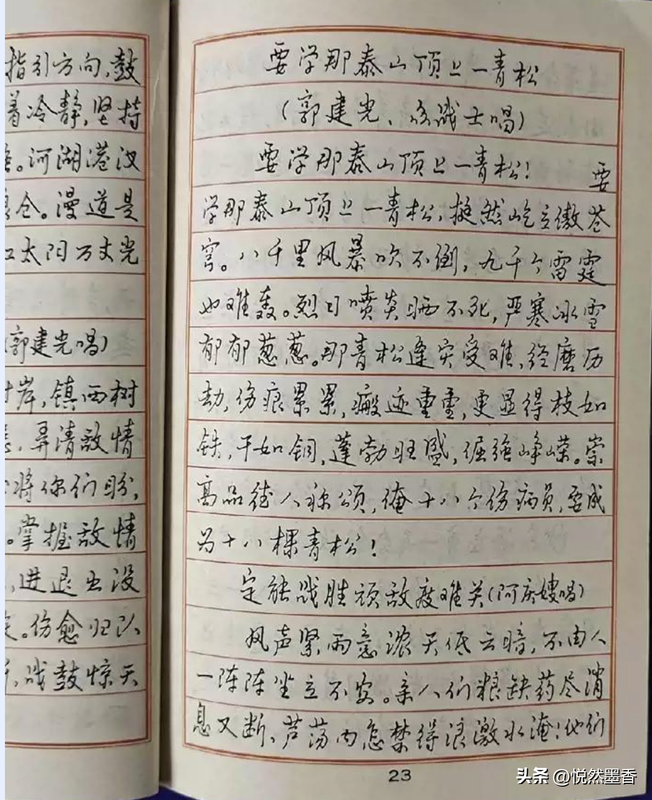 指引方向,鼓
着冷静,坚持
。河湖港汊
仓。漫道是
红太阳万丈光
郭建光唱)
对岸,镇西树
,弄清敌情
将你们盼,
。掌握敌情
,进退出没
。伤愈归队
,战鼓惊天
要学那泰山顶上一青松
(郭建光、众战士唱)
要学那泰山顶上一青松! 要
学那泰山顶上一青松,挺然屹立傲苍
穹。八千里风暴吹不倒,九千个雷霆
也难轰。烈日喷炎晒不死,严寒冰雪
郁郁葱葱。那青松逢灾受难,经磨历
劫,伤痕累累,瘢迹重重,更显得枝如
铁,干如铜,蓬勃旺盛,倔强峥嵘。崇
高品德人称颂,俺十八个伤病员,要成
为十八棵青松!
定能战胜顽敌度难关(阿庆嫂唱)
风声紧雨意浓天低云暗,不由人
一阵阵坐立不安。亲人们粮缺药尽消
息又断,芦荡内怎禁得浪激水淹!他们
23
头条 @悦然墨香